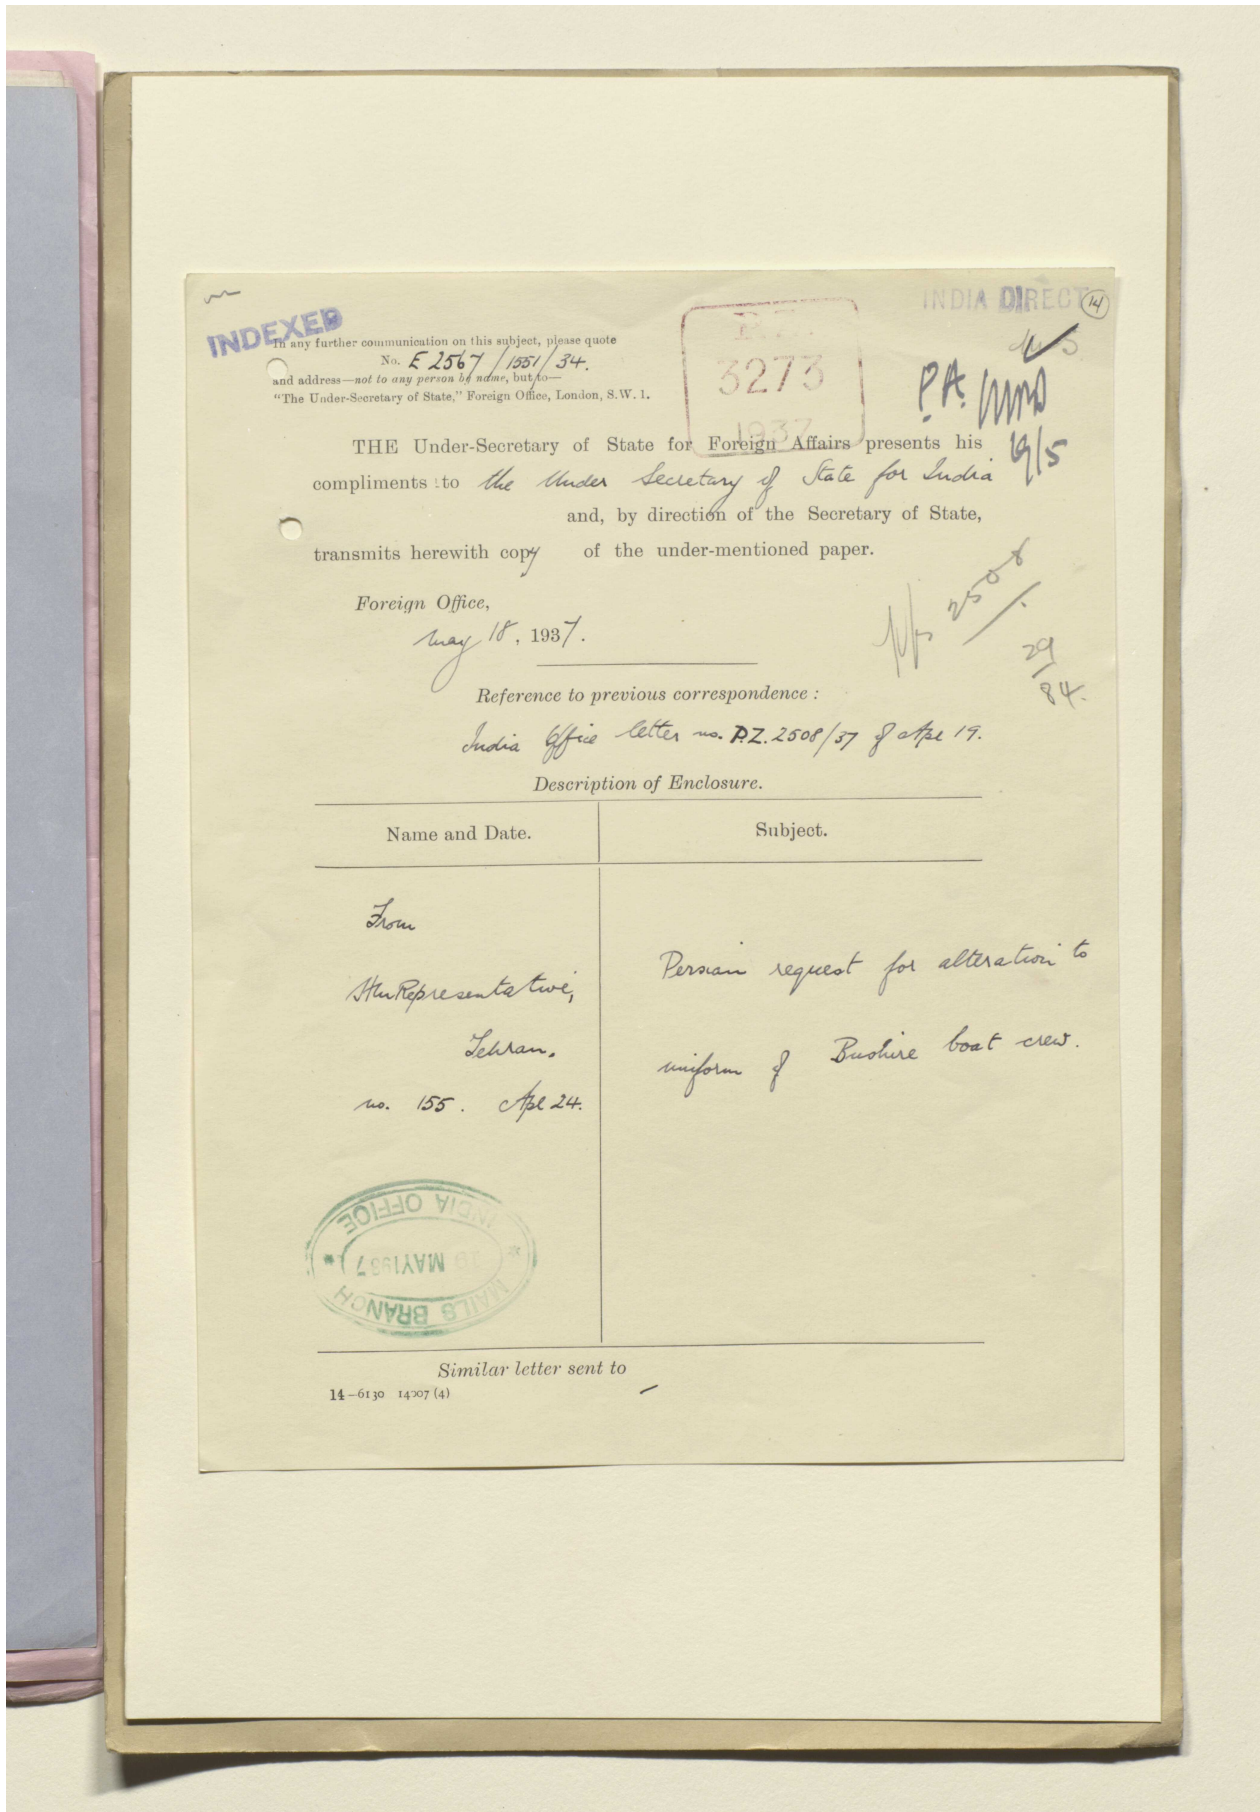 INDIA DIRECT
14
INDEXED
In any further communication on this subject, please quote
No. E 2567/1551/34.
and address—not to any person by name, but to—
"The Under-Secretary of State," Foreign Office, London, S.W. 1.
P.Z.
3273
1937
P.A.
19/5
THE Under-Secretary of State for Foreign Affairs presents his
compliments to the Under Secretary of State for India
and, by direction of the Secretary of State,
transmits herewith copy of the under-mentioned paper.
2508
29
84.
Foreign Office,
May 18, 1937.
Reference to previous correspondence :
India Office letter no. P.Z. 2508/37 of Apl 19.
Description of Enclosure.
Name and Date.
Subject.
From
HM Representative,
Tehran.
no. 155. Apl 24.
Persian request for alteration to
uniform of Bushire boat crew.
INDIA OFFICE
19 MAY 1937
MAILS BRANCH
Similar letter sent to
14—6130 14007 (4)